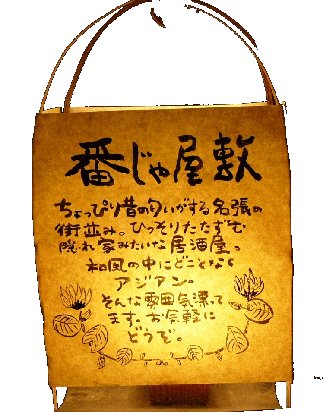 番じゃ屋敷
ちょっぴり昔の匂いがする名張の
街並み。ひっそりたたずむ
隠れ家みたいな居酒屋。
和風の中にどことなく
アジアン。
そんな雰囲気漂って
ます。お気軽に
どうぞ。